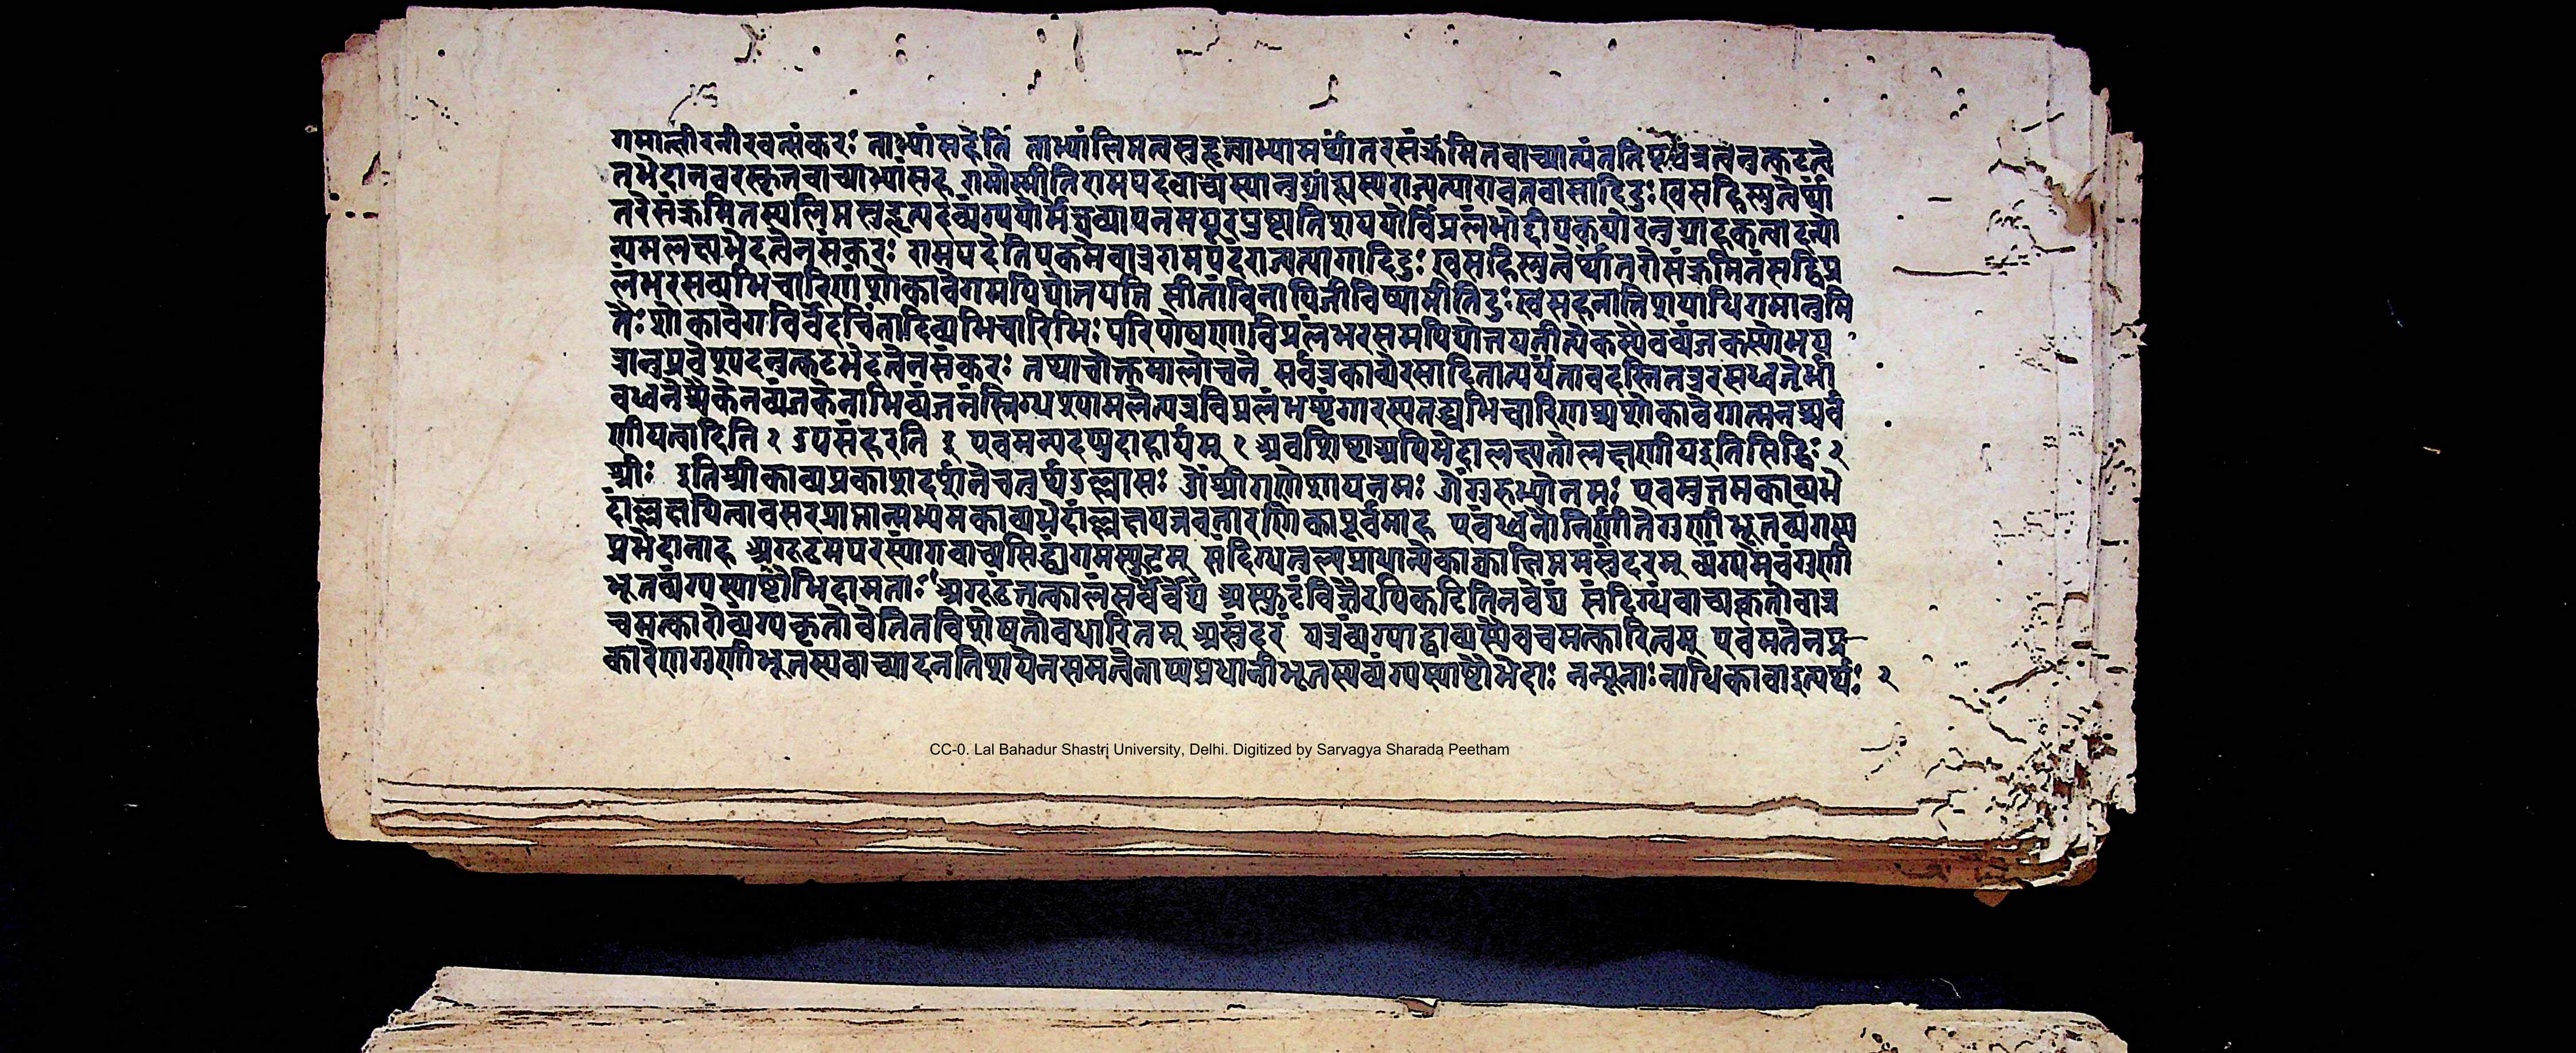 गमात्क्षीरनीरवत्संकरः ताभ्यांसहेति ताभ्यांलिप्तत्वसुहृत्त्वाभ्यामर्थांतरसंक्रमितवाच्यात्यंततिरस्
तभेदानवरस्कृतवाच्याभ्यांसह रामोस्मीतिरामपदवाच्यस्यानुग्राह्यस्यराज्यत्यागवनवासादिदुःखसहिष्णुत्वेर्था
तरेसंक्रमितस्यलिप्तसुहृत्पदव्यंग्ययोर्मेघव्यापनमयूर योर्विप्रलंभोद्दीपकयोरनुग्राहकत्वादन्यो
न्यमलक्ष्यभेदत्वेनसंकरः रामपदेतिएकमेवात्ररामपदंराज्यत्यागादिदुःखसहिष्णुत्वेर्थांतरेसंक्रमितंसद्विप्र
लंभरसव्यभिचारिणंशोकावेगमपिद्योतयति सीतांविनापिजीविष्यामीतिदुःखसहनातिशयाधिगमानुमि
तैः शोकावेगनिर्वेदचिंतादिव्यभिचारिभिः परिपोषणाविप्रलंभरसमपिद्योतयतीत्येकस्यैवव्यंजकस्योभय
त्रानुप्रवेशुपदनुत्कटभेदत्वेनसंकरः तथाचोक्तमालोचने सर्वत्रकाव्येरसादितात्पर्यंतावदस्तितत्ररसध्वनेर्भा
वध्वनेश्चैकेनव्यंजकेनाभिव्यंजनंस्निग्धश्यामलेत्यत्रविप्रलंभशृंगारस्यतद्व्यभिचारिणश्चशोकावेगात्मनश्चर्व
णीयत्वादिति २ उपसंहरति इ एवमन्यदप्युदाहार्यम् २ अवशिष्टाअपिभेदालक्ष्यतोलक्षणीयइतिसिद्धिः २
श्रीः इतिश्रीकाव्यप्रकाशदर्शनेचतुर्थउल्लासः ॐश्रीगणेशायनमः ॐगुरुभ्योनमः एवमुत्तमकाव्यभे
दांल्लक्षयित्वावसरप्राप्तान्मध्यमकाव्यभेदांल्लक्षयन्नवतारणिकापूर्वमाह एवंध्वनौनिर्णीतेगुणीभूतव्यंग्य
प्रभेदानाह अगूढमपरस्यांगवाच्यसिद्ध्यंगमस्फुटम् संदिग्धतुल्यप्राधान्येकाक्वाक्षिप्तमसुंदरम् व्यंग्यमेवंगुणी
भूतव्यंग्यस्याष्टौभिदामताः अगूढंतत्कालंसर्वैर्वेद्यं अस्फुटंविज्ञैरपिकटितिनवेद्यं संदिग्धंवाच्यकृतोवात्र
चमत्कारोव्यंग्यकृतोवेतिनविशेषतोवधारितम् असुंदरं यत्रव्यंग्याद्वाच्यस्यैवचमत्कारित्वम् एवमतेनप्र
कारेणगुणीभूतस्यवाच्यादनतिशयेनसमत्वेनाप्यप्रधानीभूतस्यव्यंग्यस्याष्टौभेदाः नन्यूनाःनाधिकावाइत्यर्थः २
CC-0. Lal Bahadur Shastri University, Delhi. Digitized by Sarvagya Sharada Peetham